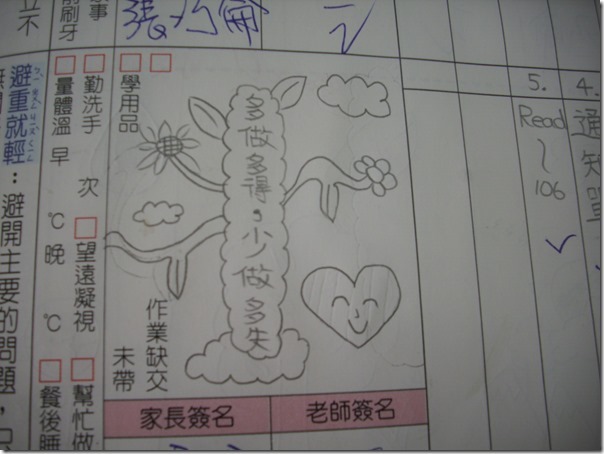 4.
通知單
5.
Read
~
106
多做多得，少做多失
□ 作業缺交
□ 學用品 未帶
老師簽名
家長簽名
家事
□ 勤洗手 次 □ 望遠凝視 □ 幫忙做
前刷牙
□ 量體溫 早 ℃ 晚 ℃ □ 餐後睡
避重就輕：避開主要的問題，只